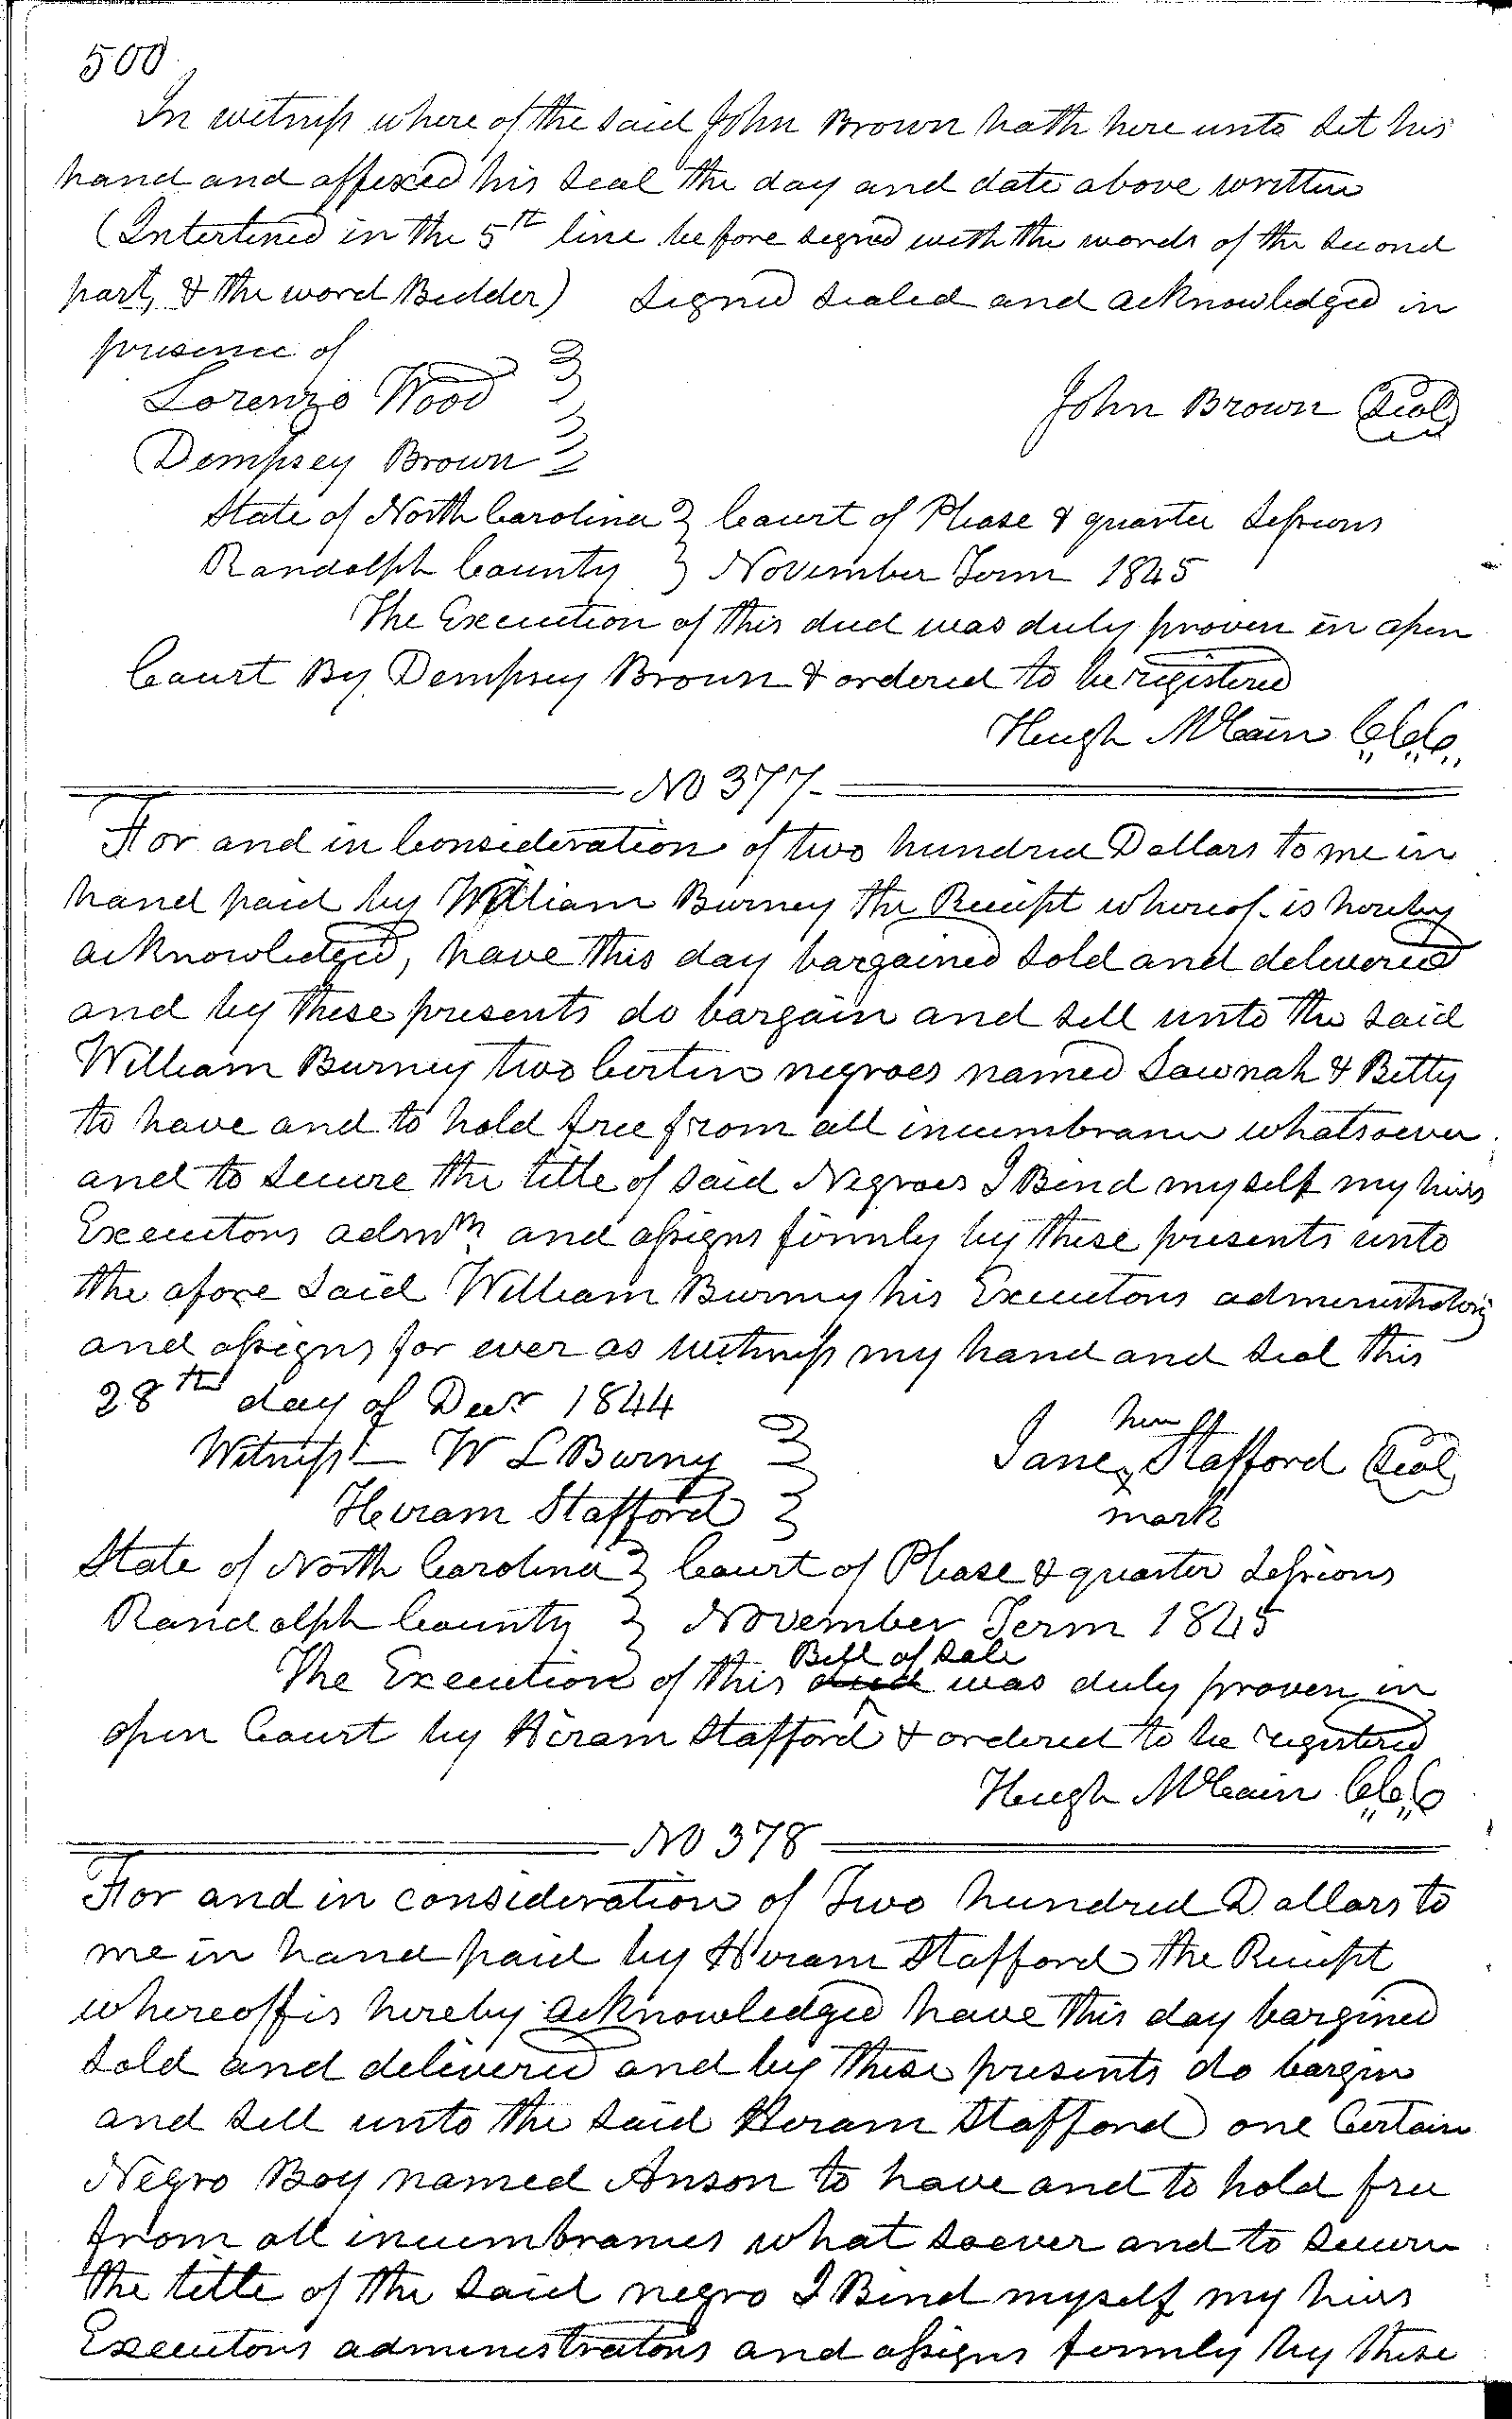 500
In witness where of the said John Brown hath here unto set his
hand and affixed his seal the day and date above written
(Interlined in the 5th line before signed with the words of the second
part, & the word Bidder) Signed sealed and acknowledged in
presence of
Lorenzo Wood
John Brown (Seal)
Dempsey Brown
State of North Carolina } Court of Please & quarter Sessions
Randolph County } November Term 1845
The Execution of this deed was duly proven in open
Court By Dempsey Brown & ordered to be registered
Hugh McCain C.C.C.
No 377
For and in Consideration of two hundred Dollars to me in
hand paid by William Burney the Receipt whereof is hereby
acknowledged, have this day bargained sold and delivered
and by these presents do bargain and sell unto the said
William Burney two Certin negroes named Sawnah & Betty
to have and to hold free from all incumbrance whatsoever
and to secure the title of said Negroes I Bind myself my heirs
Executors admrs and assigns firmly by these presents unto
the afore said William Burney his Executors administrators
and assigns for ever as witness my hand and seal this
28th day of Decr 1844
Witness W L Burny
her
Jane x Stafford (Seal)
Hiram Stafford
mark
State of North Carolina } Court of Please & quarter Sessions
Randolph County } November Term 1845
Bill of Sale
The Execution of this deed was duly proven in
open Court by Hiram Stafford & ordered to be registered
Hugh McCain C.C.C
No 378
For and in consideration of Two hundred Dollars to
me in hand paid by Hiram Stafford the Receipt
whereoff is hereby acknowledged have this day bargined
sold and delivered and by these presents do bargin
and sell unto the said Hiram Stafford one Certain
Negro Boy named Anson to have and to hold free
from all incumbrances what soever and to secure
the title of the said negro I Bind myself my heirs
Executors administrators and assigns firmly by these